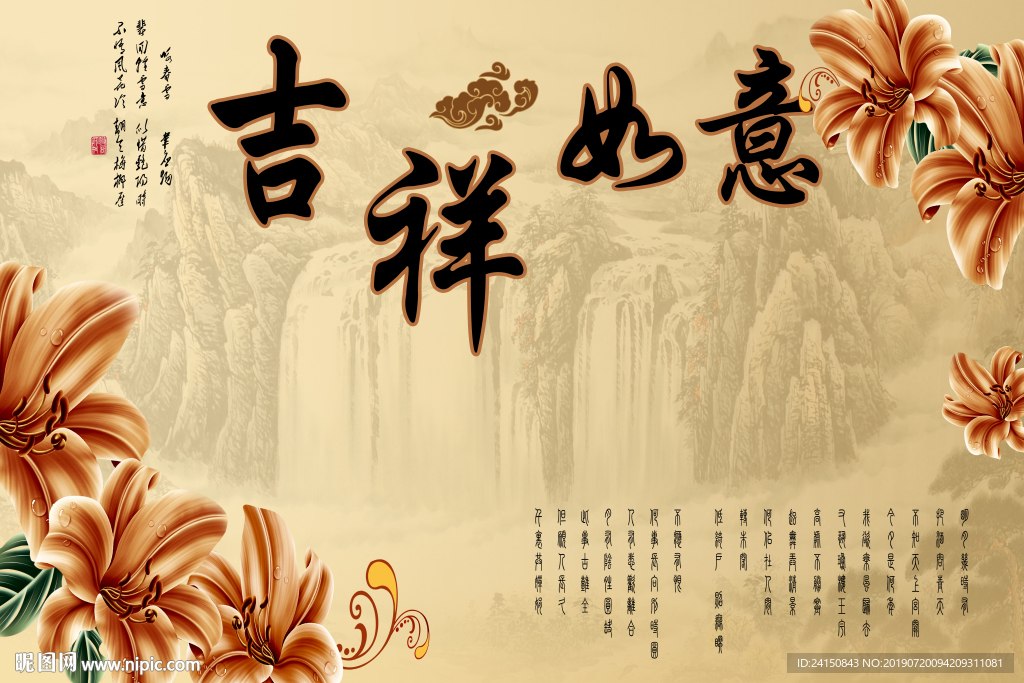 吉祥如意
咏春雪 韋應物
裴回輕雪意 似惜艷陽時
不悟風花冷 翻令梅柳遲
明月幾時有
把酒問青天
不知天上宮闕
今夕是何年
我欲乘風歸去
又恐瓊樓玉宇
高處不勝寒
起舞弄清影
何似在人間
轉朱閣
低綺戶 照無眠
不應有恨
何事長向別時圓
人有悲歡離合
月有陰晴圓缺
此事古難全
但願人長久
千里共嬋娟
昵图网 www.nipic.com
ID:24150843 NO:20190720094209311081